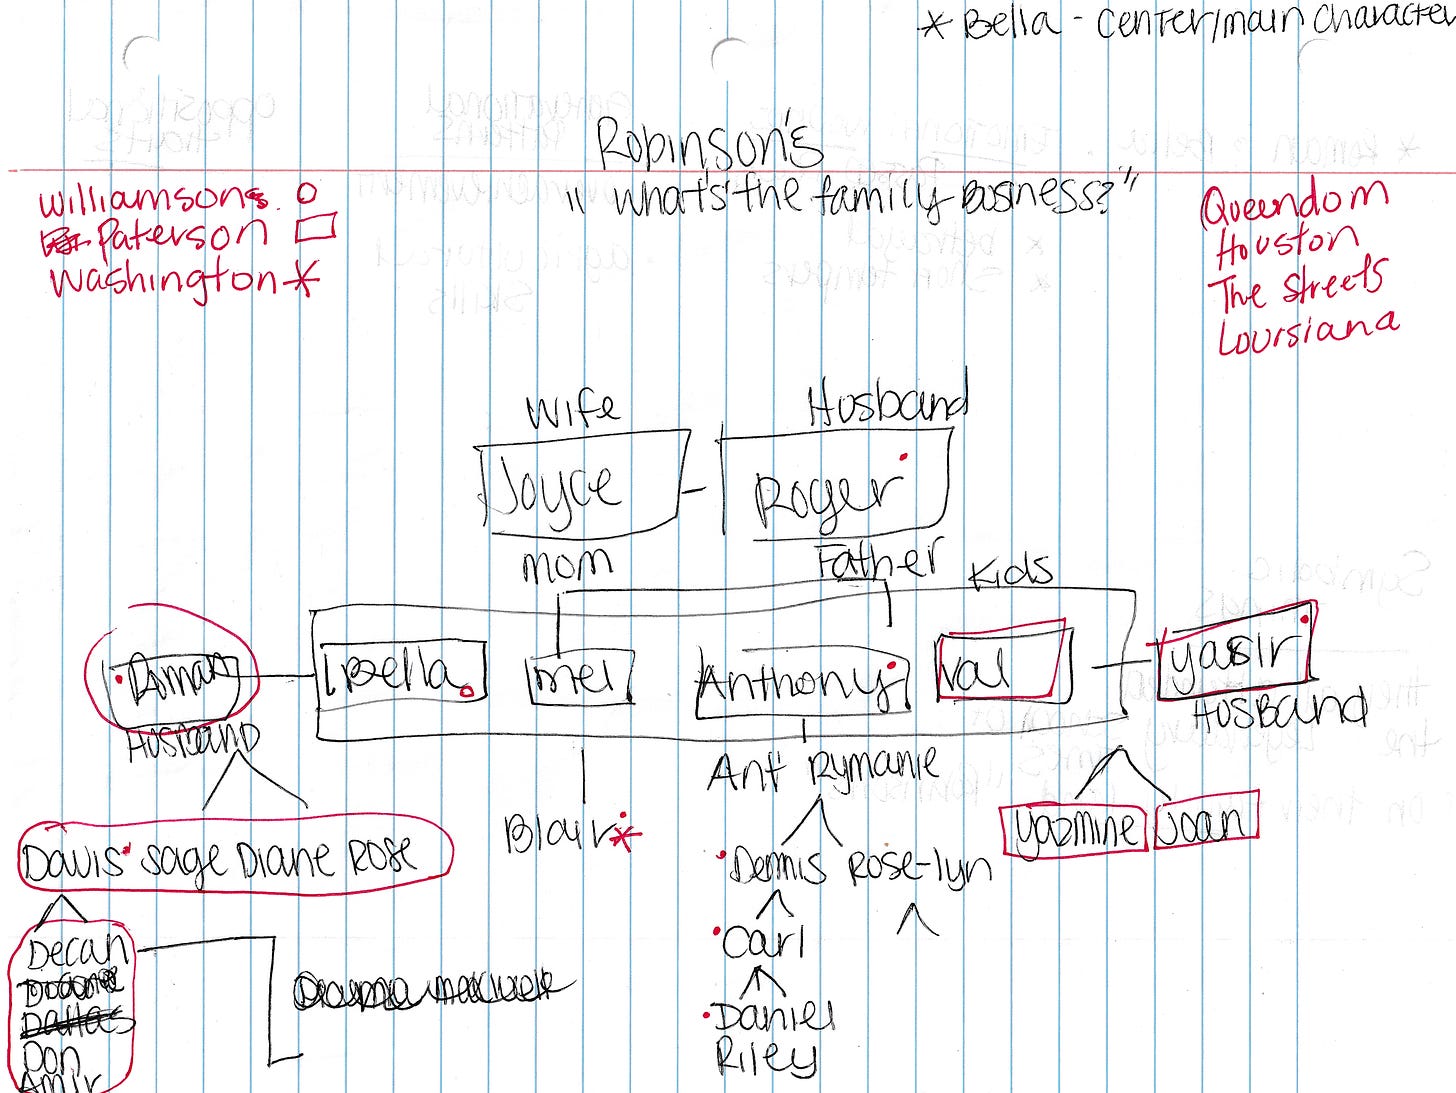 * Bella - Center/main character
Robinson's
"What's the family Business?"
Williamsons
Paterson
Washington *
Queendom
Houston
The Streets
Loursiana
Wife
Husband
Joyce - Roger
mom
Father
Kids
Roman
Bella
mel
Anthony
Val
yasir
Husband
Husband
Ant Rymanie
Blair*
yazmine
Joan
Davis Sage Diane Rose
Dennis Rose-lyn
Decan
Carl
Dallas
Don
Daniel
Riley
Amir